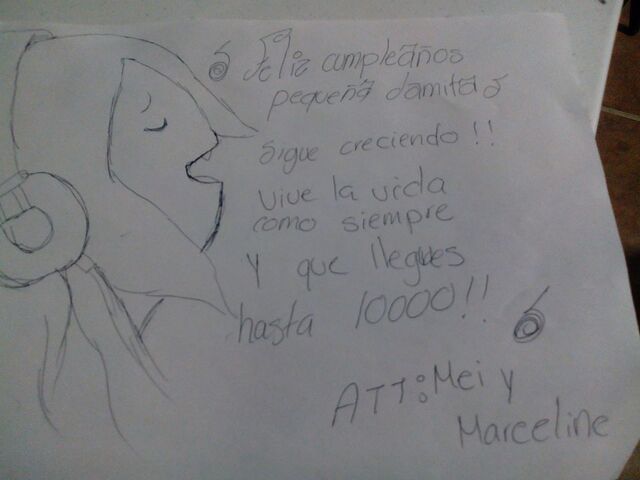 Feliz cumpleaños
pequeña damita
Sigue creciendo !!
vive la vida
como siempre
Y que llegues
hasta 10000!!
ATT: Mei y
Marceline